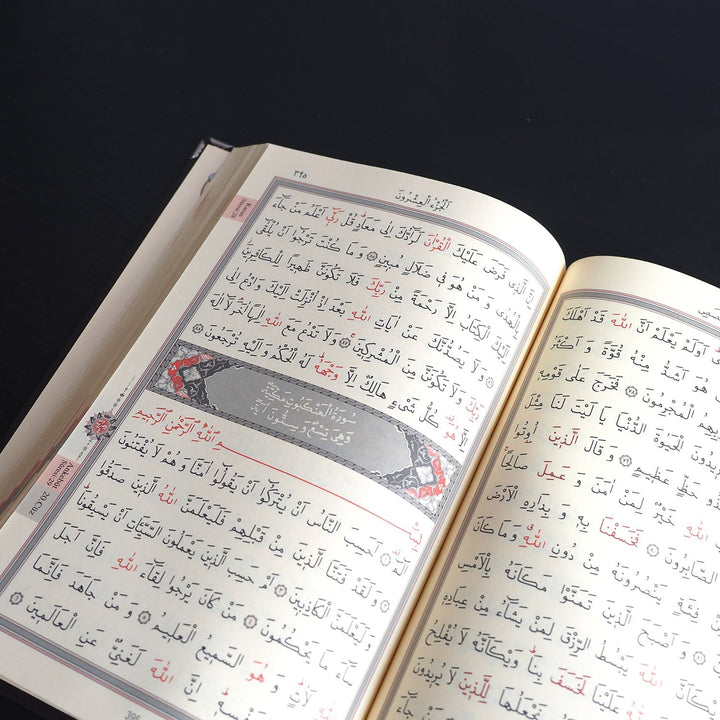 اَوَلَمْ يَعْلَمْ اَنَّ اللّٰهَ قَدْ اَهْلَكَ
هُوَ اَشَدُّ مِنْهُ قُوَّةً وَاَكْثَرُ
الْمُجْرِمُونَ ﴿٧٨﴾ فَخَرَجَ عَلٰى قَوْمِهِ
الْحَيٰوةَ الدُّنْيَا يَا لَيْتَ لَنَا مِثْلَ
حَظٍّ عَظِيمٍ ﴿٧٩﴾ وَقَالَ الَّذِينَ اُوتُوا
اللّٰهِ خَيْرٌ لِمَنْ اٰمَنَ وَعَمِلَ صَالِحًا
الصَّابِرُونَ ﴿٨٠﴾ فَخَسَفْنَا بِهِ وَبِدَارِهِ الْاَرْضَ
فِئَةٍ يَنْصُرُونَهُ مِنْ دُونِ اللّٰهِ وَمَا كَانَ
وَاَصْبَحَ الَّذِينَ تَمَنَّوْا مَكَانَهُ بِالْاَمْسِ
اللّٰهَ يَبْسُطُ الرِّزْقَ لِمَنْ يَشَٓاءُ مِنْ عِبَادِهِ
اللّٰهُ عَلَيْنَا لَخَسَفَ بِنَا وَيْكَاَنَّهُ لَا يُفْلِحُ
نَجْعَلُهَا لِلَّذِينَ لَا يُرِيدُونَ
اَلْجُزْءُ الْعِشْرُونَ
٣٩٥
اِنَّ الَّذِي فَرَضَ عَلَيْكَ الْقُرْاٰنَ لَرَٓادُّكَ اِلٰى مَعَادٍ قُلْ رَبِّي اَعْلَمُ مَنْ جَٓاءَ
بِالْهُدٰى وَمَنْ هُوَ فِي ضَلَالٍ مُبِينٍ ﴿٨٥﴾ وَمَا كُنْتَ تَرْجُٓوا اَنْ يُلْقٰٓى
اِلَيْكَ الْكِتَابُ اِلَّا رَحْمَةً مِنْ رَبِّكَ فَلَا تَكُونَنَّ ظَهِيرًا لِلْكَافِرِينَ ﴿٨٦﴾
وَلَا يَصُدُّنَّكَ عَنْ اٰيَاتِ اللّٰهِ بَعْدَ اِذْ اُنْزِلَتْ اِلَيْكَ وَادْعُ اِلٰى
رَبِّكَ وَلَا تَكُونَنَّ مِنَ الْمُشْرِكِينَ ﴿٨٧﴾ وَلَا تَدْعُ مَعَ اللّٰهِ اِلٰهًا اٰخَرَ لَٓا اِلٰهَ
اِلَّا هُوَ كُلُّ شَيْءٍ هَالِكٌ اِلَّا وَجْهَهُ لَهُ الْحُكْمُ وَاِلَيْهِ تُرْجَعُونَ ﴿٨٨﴾
سُورَةُ الْعَنْكَبُوتِ مَكِّيَّةٌ
وَهِيَ تِسْعٌ وَسِتُّونَ اٰيَةً
بِسْمِ اللّٰهِ الرَّحْمٰنِ الرَّحِيمِ
الٓمٓ ﴿١﴾ اَحَسِبَ النَّاسُ اَنْ يُتْرَكُٓوا اَنْ يَقُولُٓوا اٰمَنَّا وَهُمْ لَا يُفْتَنُونَ
﴿٢﴾ وَلَقَدْ فَتَنَّا الَّذِينَ مِنْ قَبْلِهِمْ فَلَيَعْلَمَنَّ اللّٰهُ الَّذِينَ صَدَقُوا
وَلَيَعْلَمَنَّ الْكَاذِبِينَ ﴿٣﴾ اَمْ حَسِبَ الَّذِينَ يَعْمَلُونَ السَّيِّـَٔاتِ اَنْ يَسْبِقُونَا
سَٓاءَ مَا يَحْكُمُونَ ﴿٤﴾ مَنْ كَانَ يَرْجُوا لِقَٓاءَ اللّٰهِ فَاِنَّ اَجَلَ
اللّٰهِ لَاٰتٍ وَهُوَ السَّمِيعُ الْعَلِيمُ ﴿٥﴾ وَمَنْ جَاهَدَ فَاِنَّمَا
لِنَفْسِهِ اِنَّ اللّٰهَ لَغَنِيٌّ عَنِ الْعَالَمِينَ ﴿٦﴾
Kasas
Sûresi-28
Ankebût
Sûresi-29
20.Cüz
395